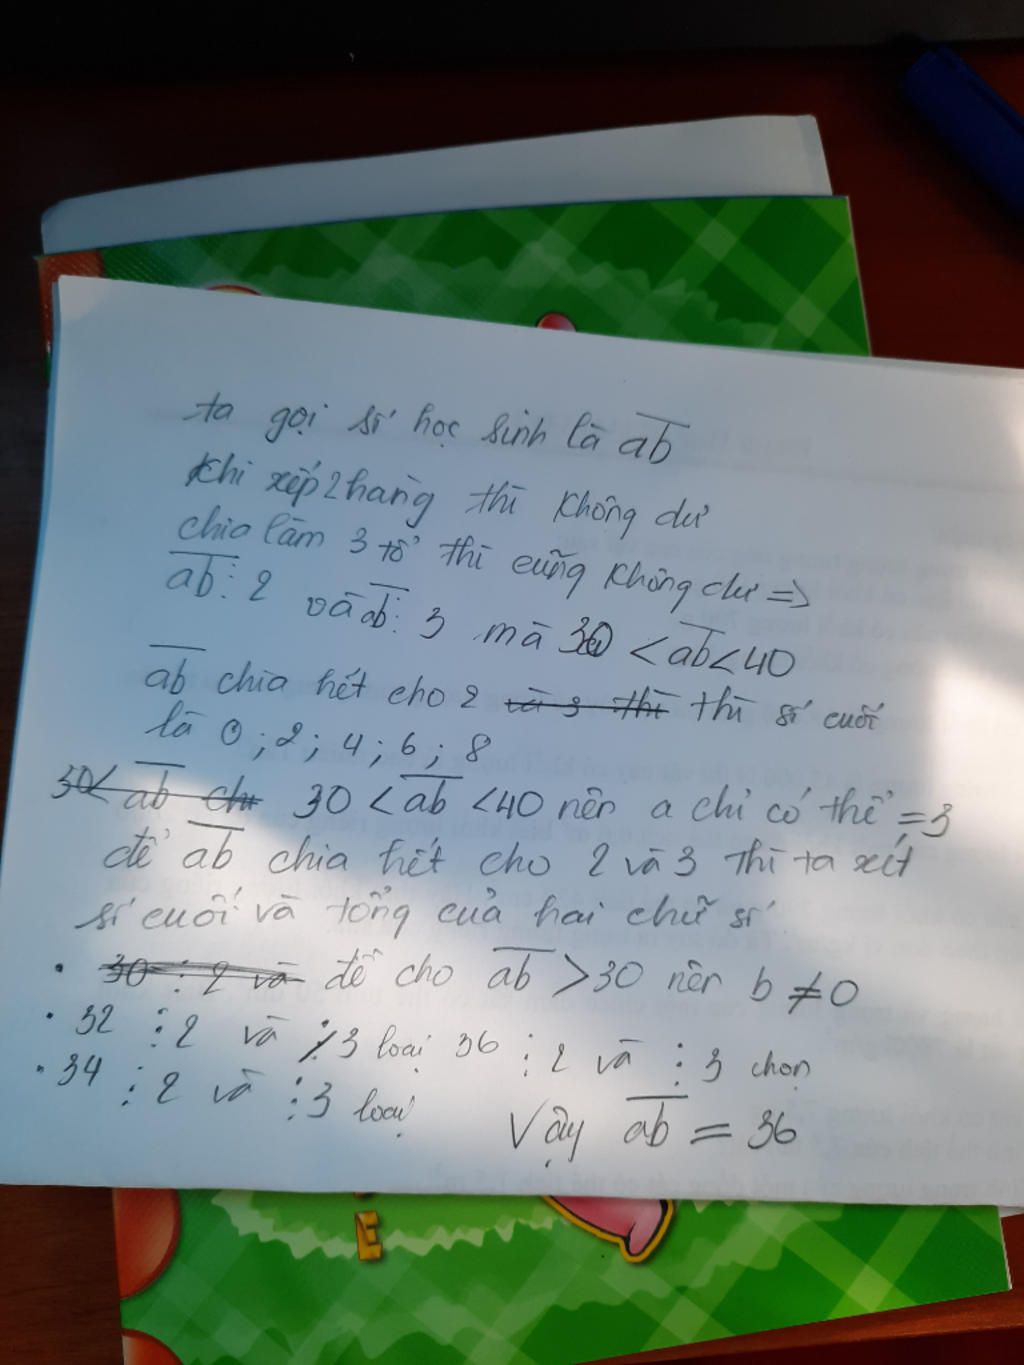 ta gọi số học sinh là ab
Khi xếp 2 hàng thì không dư
chia làm 3 tổ thì cũng không dư =>
ab ⋮ 2 và ab ⋮ 3 mà 30 < ab < 40
ab chia hết cho 2 và 3 thì thì số cuối
là 0 ; 2 ; 4 ; 6 ; 8
30 < ab 30 < ab < 40 nên a chỉ có thể = 3
để ab chia hết cho 2 và 3 thì ta xét
số cuối và tổng của hai chữ số
• 30 ⋮ 2 và để cho ab > 30 nên b ≠ 0
• 32 ⋮ 2 và ⋮̸ 3 loại 36 ⋮ 2 và ⋮ 3 chọn
• 34 ⋮ 2 và ⋮ 3 loại
Vậy ab = 36
E